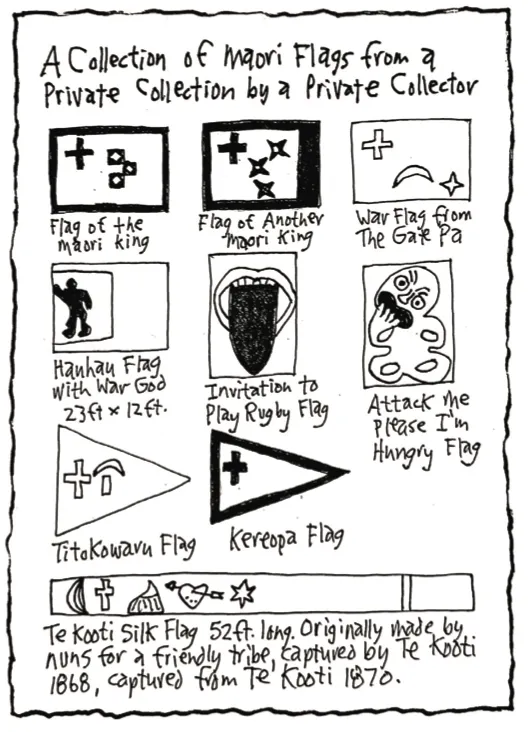 A Collection of Maori Flags from a
Private Collection by a Private Collector
Flag of the
Maori King
Flag of Another
Maori King
War Flag from
The Gate Pa
Hauhau Flag
With War God
23ft x 12ft.
Invitation to
Play Rugby Flag
Attack Me
Please I'm
Hungry Flag
Titokowaru Flag
Kereopa Flag
Te Kooti Silk Flag 52ft. long. Originally made by
nuns for a friendly tribe, captured by Te Kooti
1868, captured from Te Kooti 1870.